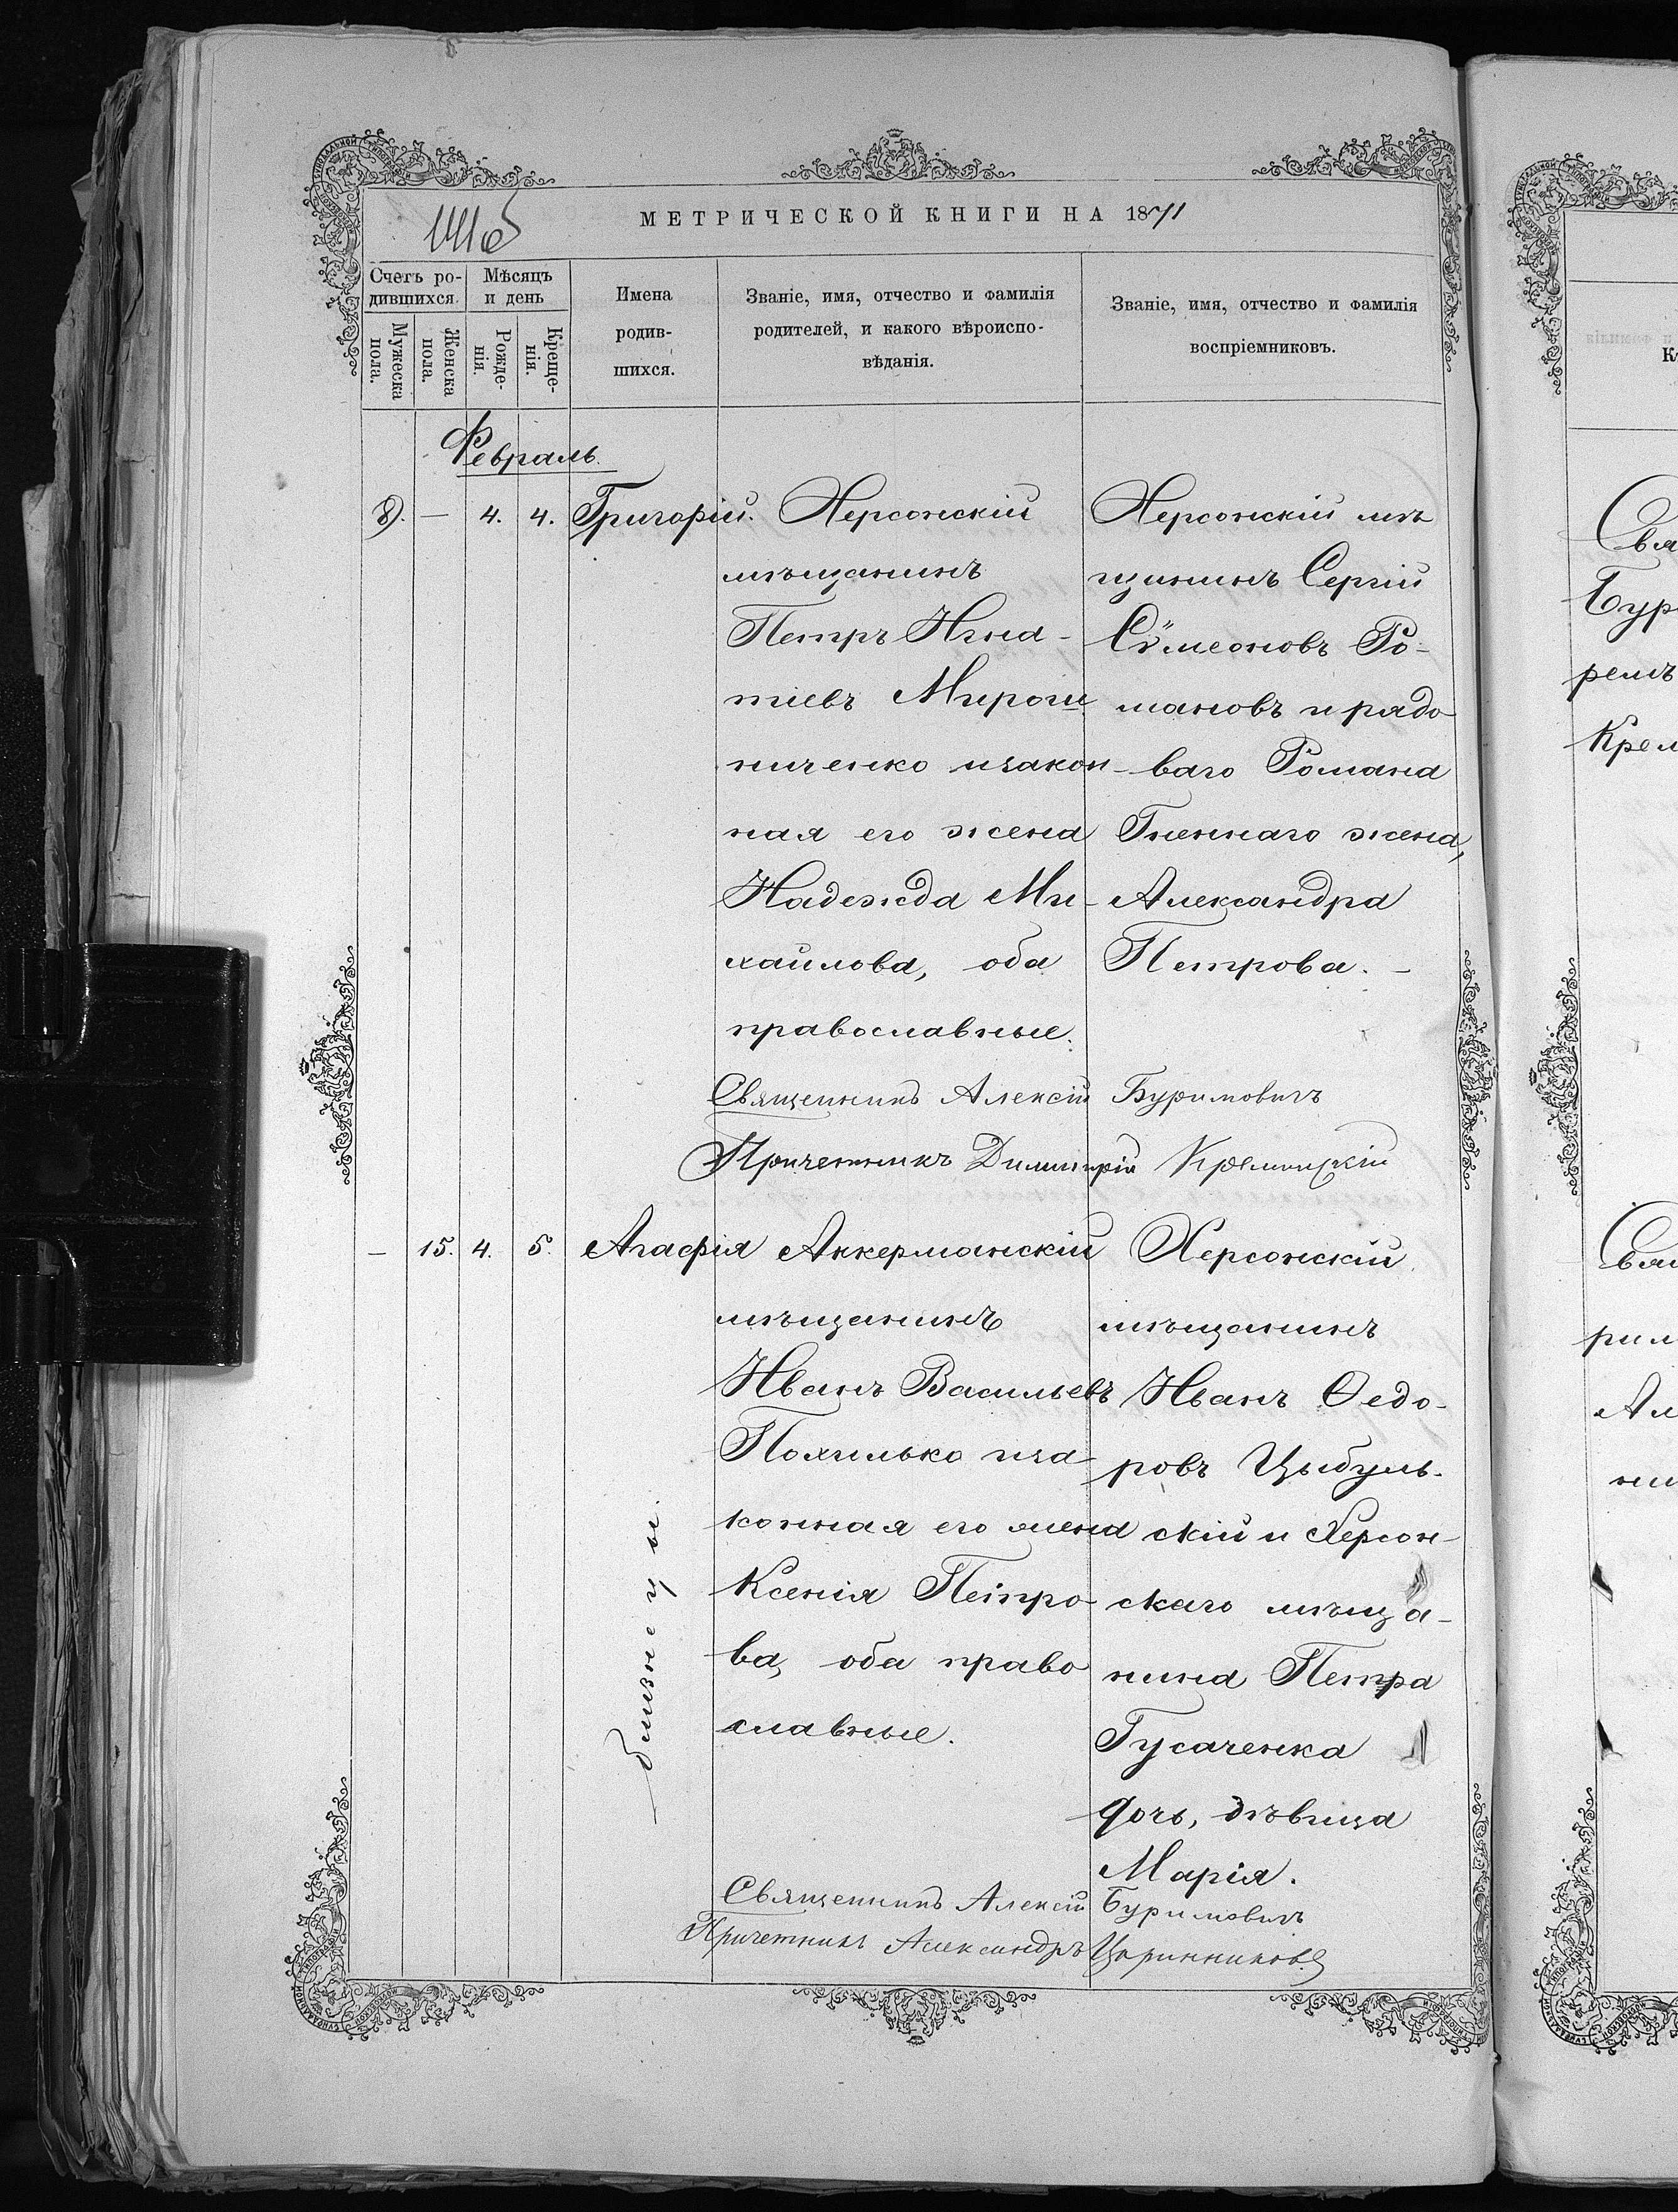 МЕТРИЧЕСКОЙ КНИГИ НА 1871
Счетъ ро-
дившихся.
Мѣсяцъ
и день
Мужеска
пола.
Женска
пола.
Рожде-
нія.
Креще-
нія.
Имена
родив-
шихся.
Званіе, имя, отчество и фамилія
родителей, и какого вѣроиспо-
вѣданія.
Званіе, имя, отчество и фамилія
воспріемниковъ.
Февраль.
8. — 4. 4. Григорій.
Херсонскій
мѣщанинъ
Петръ Игна-
тіевъ Мирош-
ниченко и закон-
ная его жена
Надежда Ми-
хайлова, оба
православные.
Херсонскій мѣ
щининъ Сергій
Сѵмеоновъ Ро-
мановъ и рядо
ваго Романа
Гненнаго жена,
Александра
Петрова. —
Священникъ Алексій Буримовичъ
Причетникъ Димитрій Кремницкій
— 15. 4. 5. Агафія
близнецы
Аккерманскій
мѣщанинъ
Иванъ Васильевъ
Похилько и за
конная его жена
Ксенія Петро-
ва, оба право
славные.
Херсонскій
мѣщанинъ
Иванъ Ѳедо-
ровъ Цыбуль-
скій и Херсон-
скаго мѣща-
нина Петра
Гусаченка
дочь, дѣвица
Марія.
Священникъ Алексій Буримовичъ
Причетникъ Александръ Царинниковъ
Свя
Бур
релъ
Крем
Свя
рим
Ал
ни